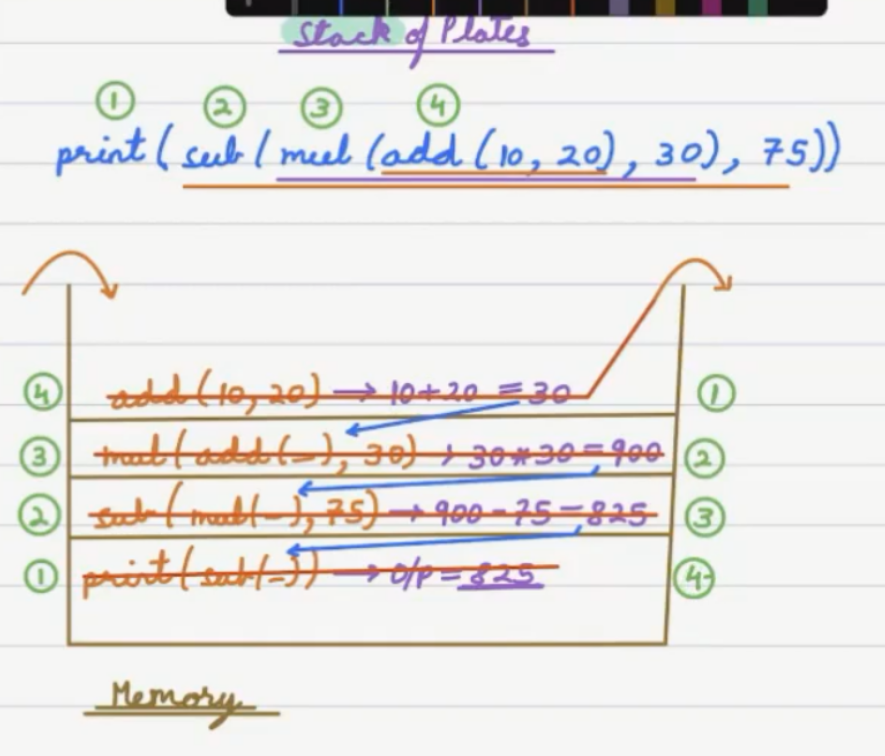 Stack of Plates
① ② ③ ④
print(sub(mul(add(10, 20), 30), 75))
④ add(10, 20) → 10+20 = 30 ①
③ mul(add(_), 30) → 30*30=900 ②
② sub(mul(-), 75) → 900-75=825 ③
① print(sub(-)) → O/P = 825 ④
Memory